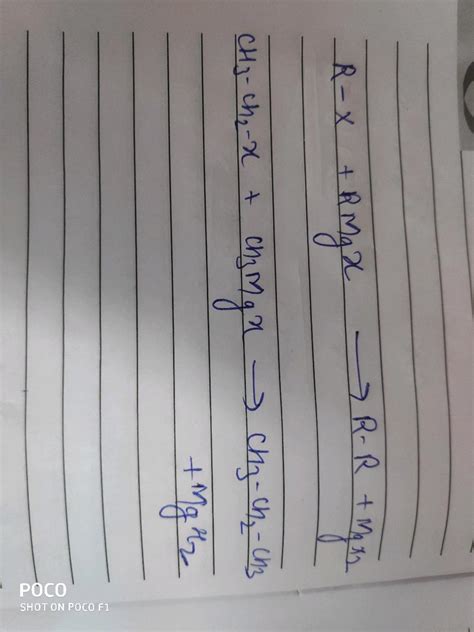 R-X + RMgX ⟶ R-R + MgX2
CH3-CH2-X + CH3MgX ⟶ CH3-CH2-CH3
+MgX2
POCO
SHOT ON POCO F1